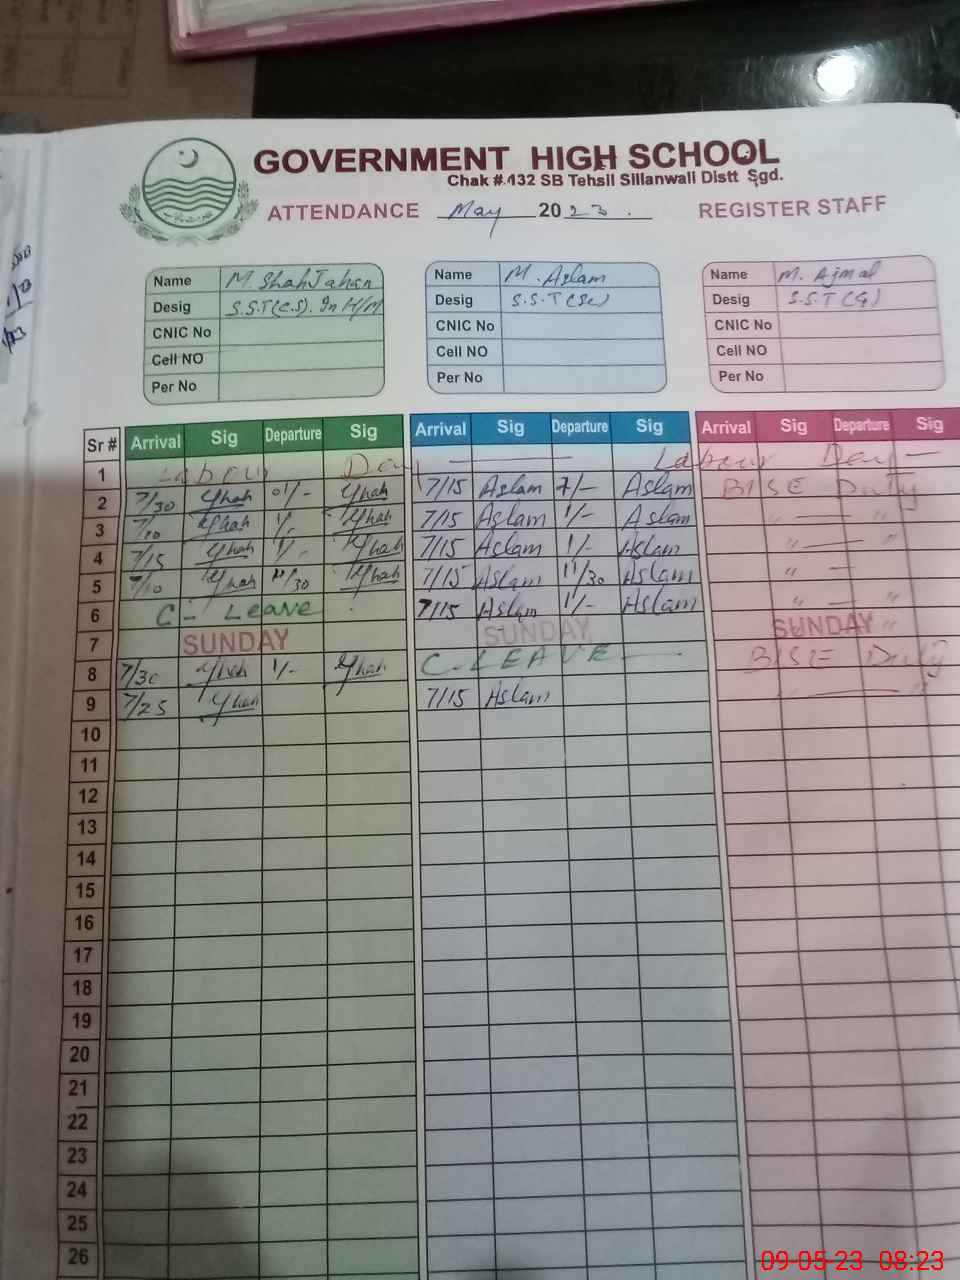 GOVERNMENT HIGH SCHOOL
Chak #.132 SB Tehsil Sillanwali Distt Sgd.
ATTENDANCE May 2023. REGISTER STAFF
Name M. ShahJahan Name M. Aslam Name M. Ajmal
Desig S.S.T(C.S). In H/M Desig S.S.T(Sc) Desig S.S.T(G)
CNIC No CNIC No CNIC No
Cell NO Cell NO Cell NO
Per No Per No Per No
Sr # Arrival Sig Departure Sig Arrival Sig Departure Sig Arrival Sig Departure Sig
1 Labour Day Labour Day
2 7/30 01/- 7/15 Aslam 7/- Aslam BISE Duty
3 7/10 1/- 7/15 Aslam 1/- Aslam " "
4 7/15 1/- 7/15 Aslam 1/- Aslam " "
5 7/10 11/30 7/15 Aslam 11/30 Aslam " "
6 C - Leave 7/15 Aslam 1/- Aslam " "
7 SUNDAY SUNDAY SUNDAY
8 7/30 1/- C-LEAVE BISE Duty
9 7/25 7/15 Aslam " "
10
11
12
13
14
15
16
17
18
19
20
21
22
23
24
25
26
09-05-23 08:23